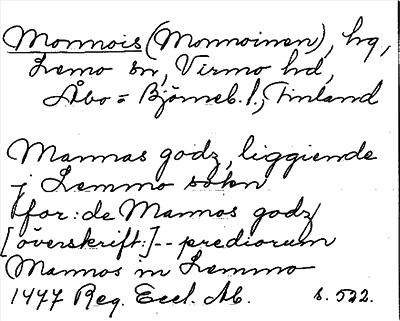 Monnois (Monnoinen), hg,
Lemo sn, Virmo hd,
Åbo = Björneb. l., Finland
Mannas godz, liggiende
j Lemmo sokn
for: de Mannos godz
[överskrift:] -- prediorum
Mannos in Lemmo
1477 Reg. Eccl. Ab. s. 522.